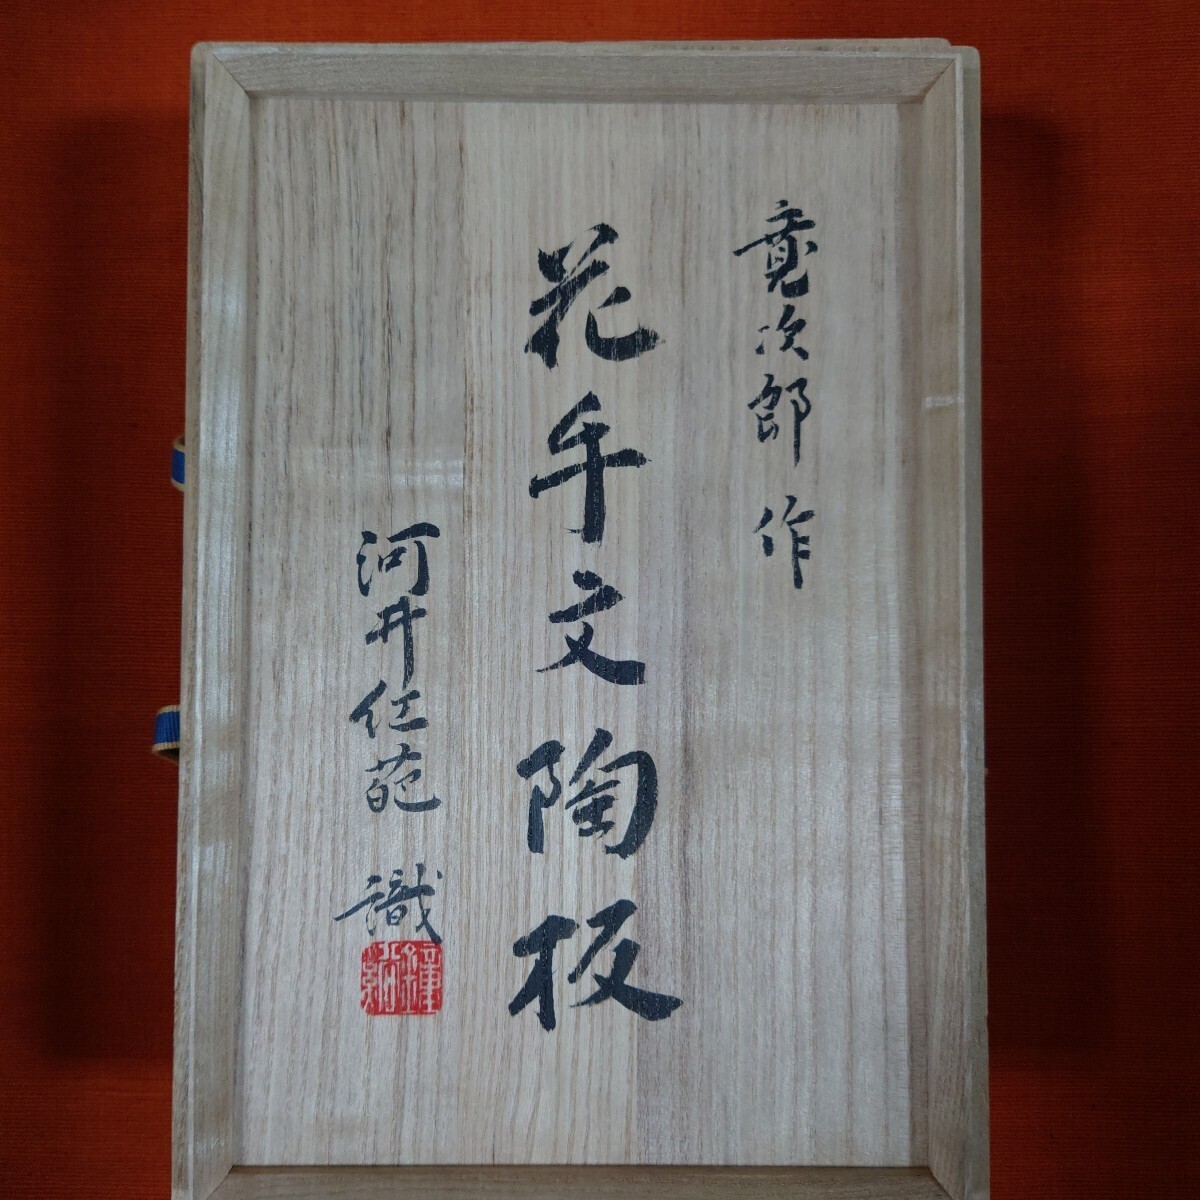 寛次郎 作
花手文陶板
河井紅葩 識